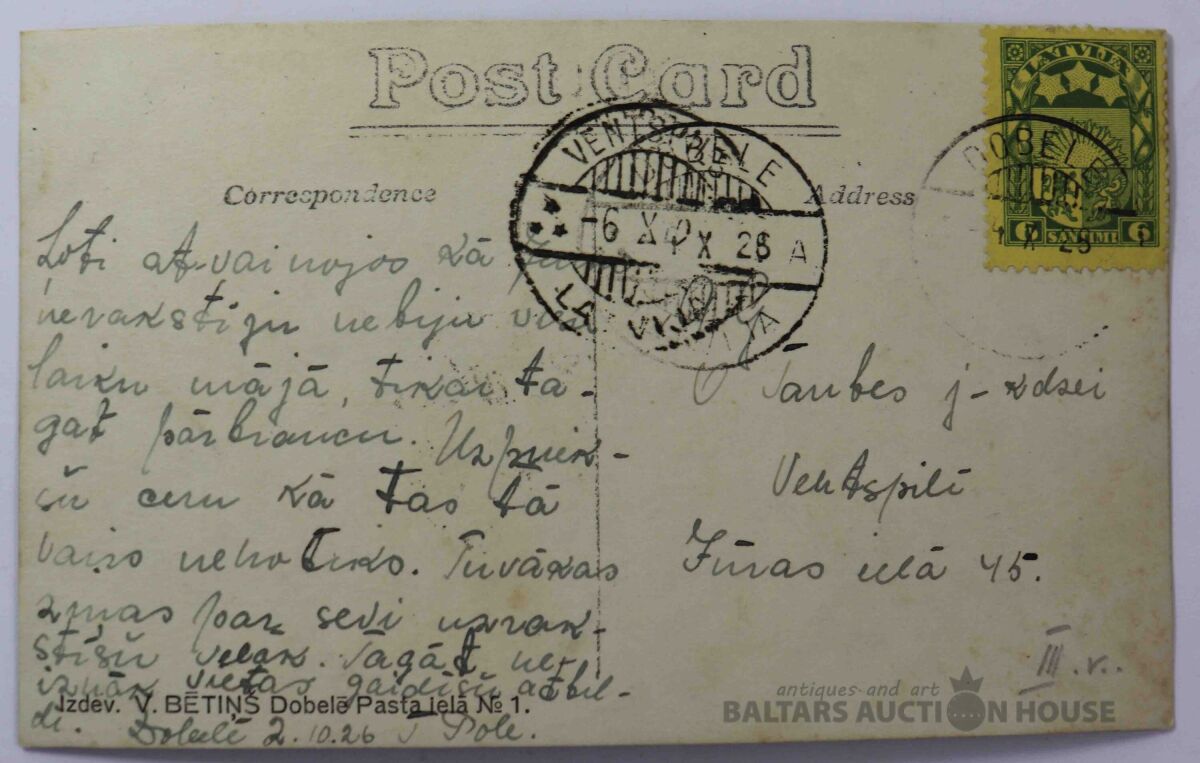 Post Card
Correspondence
Address
LATVIJA
6 SANTIMI 6
DOBELE
VENTSPILS
DOBELE
-6 X
4 X 26 A
LATVIJA
Ļoti at-vainojos kā
nerakstiju nebiju visu
laiku mājā, tikai ta-
gat pārbraucu. Uzpriek-
šu ceru kā tas tā
vairs nenotiks. Tuvākas
ziņas par sevi uzrak-
stīšu vēlak. Tagāt ne-
iznāk vietas gaidīšu atbil-
di. Dobelē 2.10.26 T Pole.
Izdev. V. BĒTIŅŠ Dobelē Pasta ielā № 1.
Taubes j-kdzei
Ventspilī
Jūras ielā 45.
III.v..
antiques and art
BALTARS AUCTION HOUSE